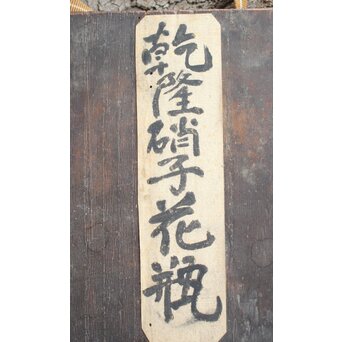 乾隆硝子花瓶